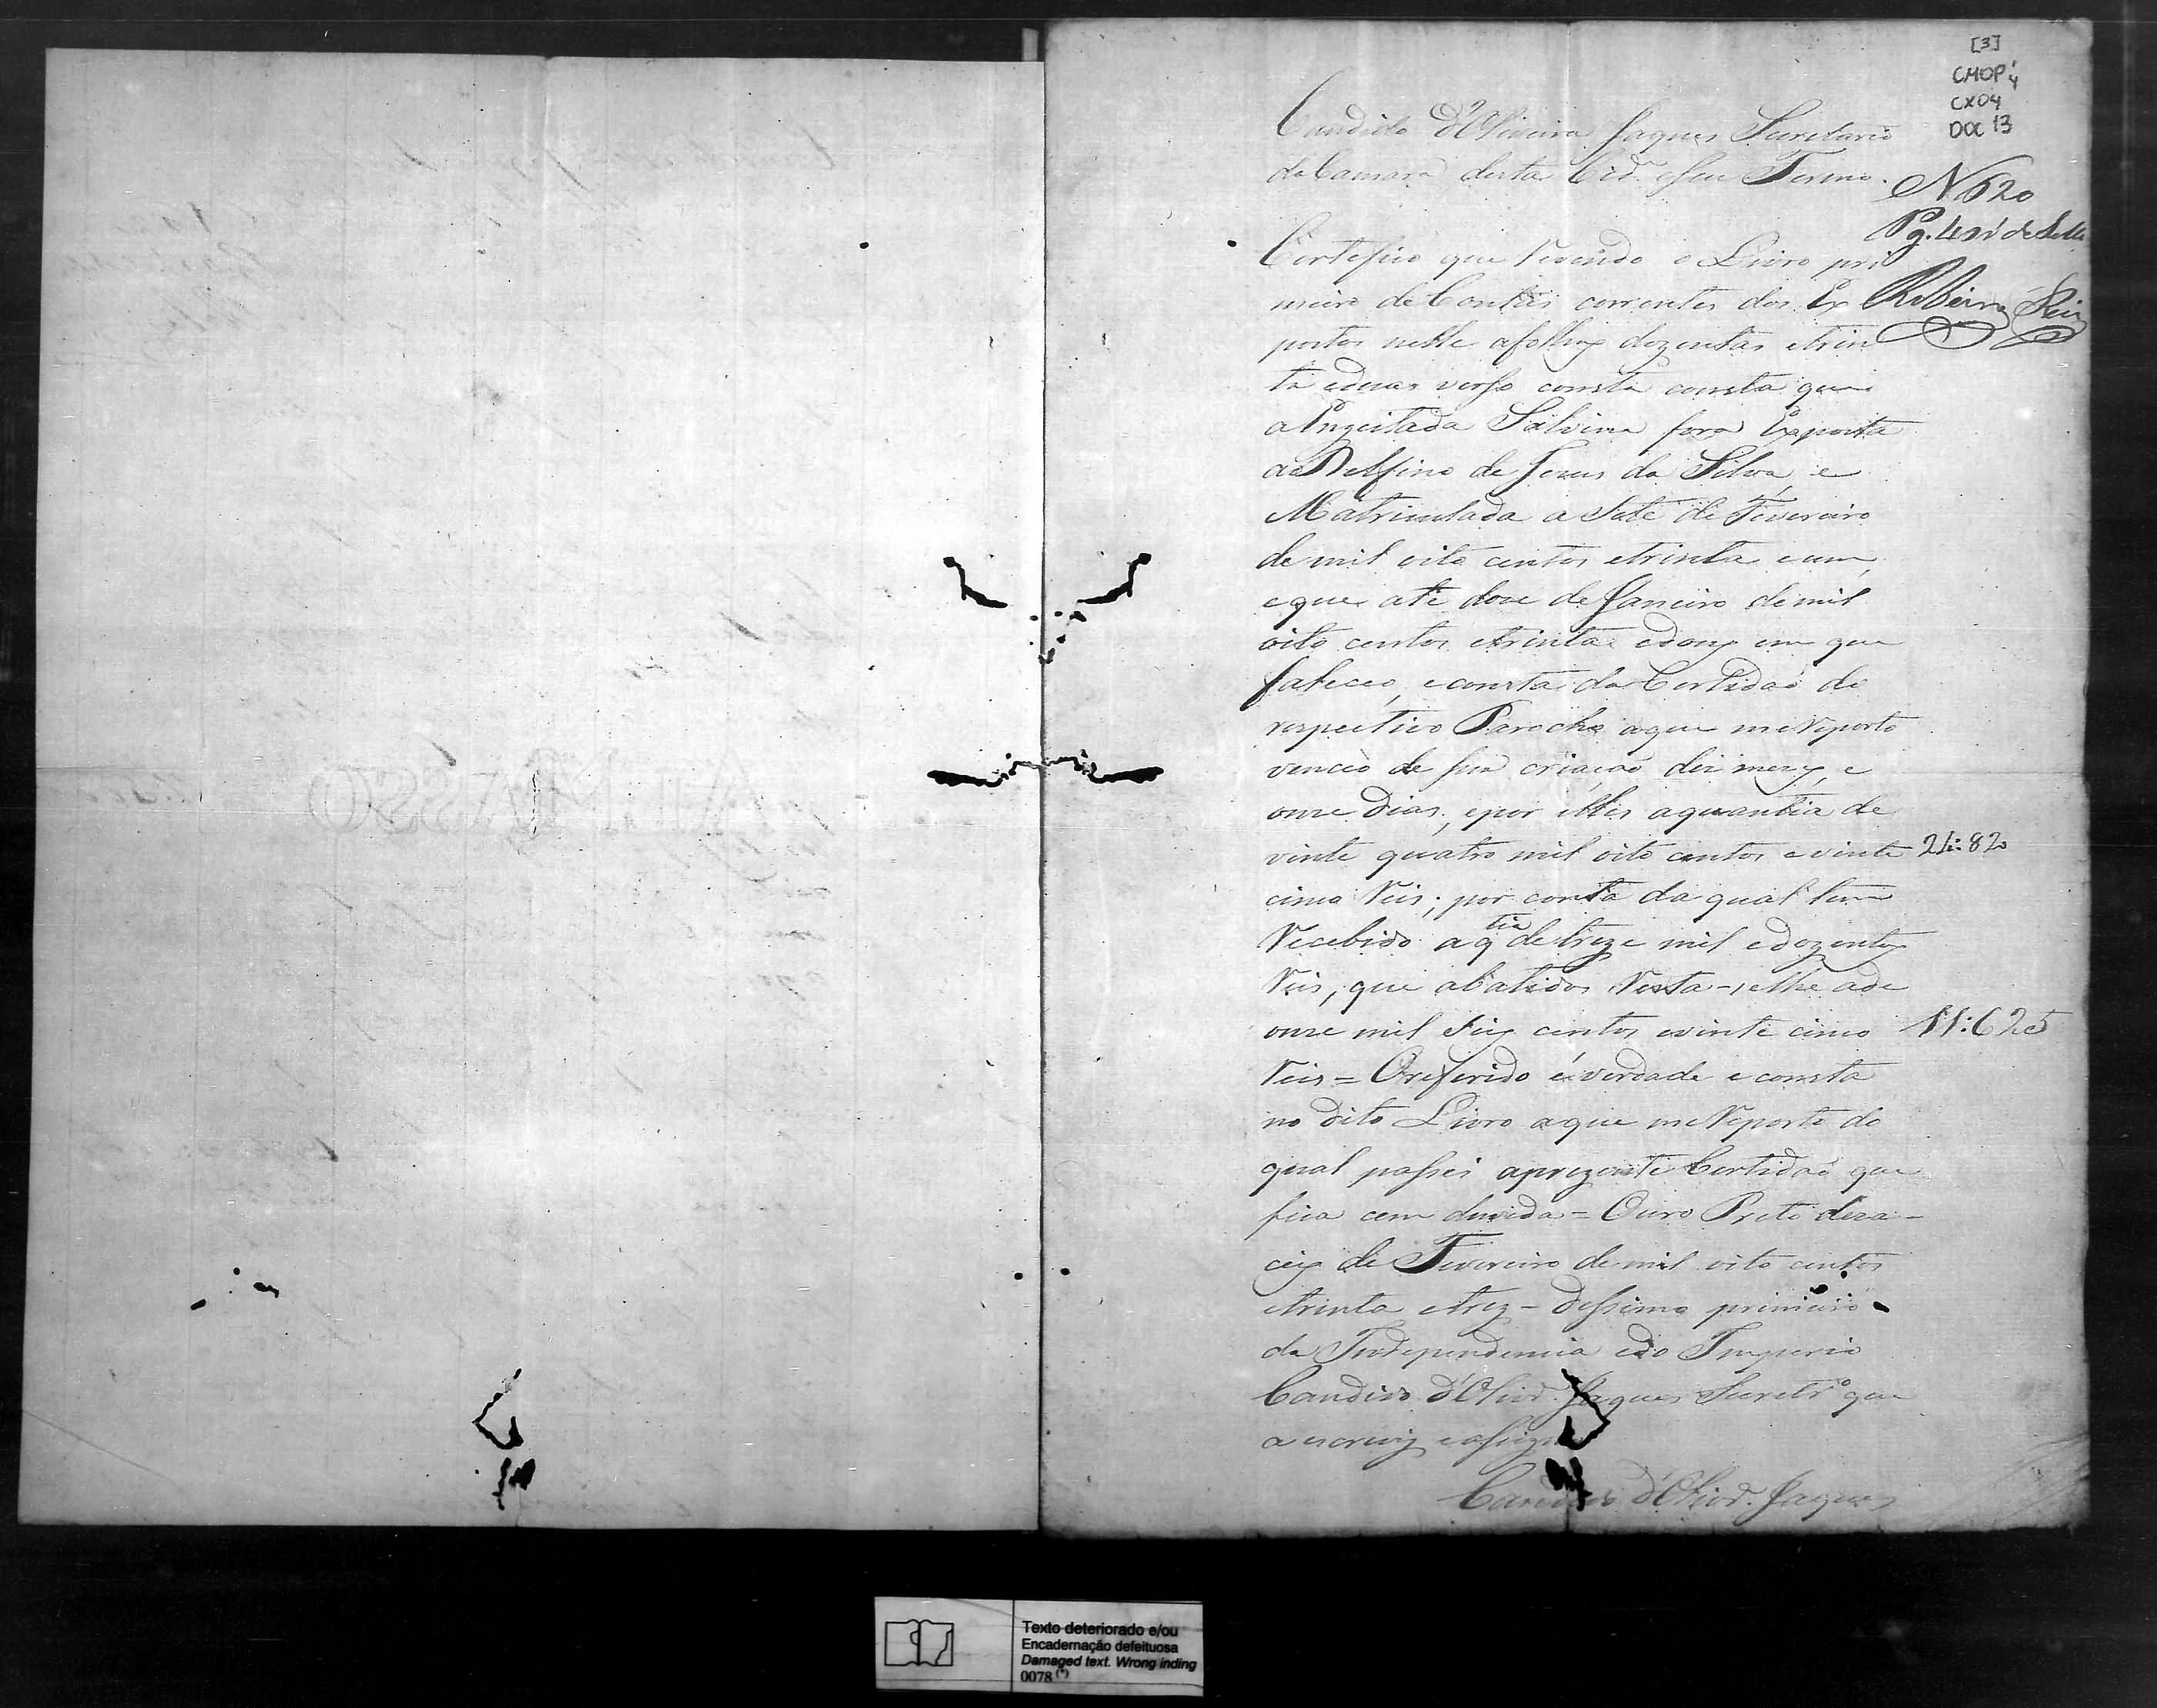 [3]
CMOP
CX04
DOC 13
Candido d'Oliveira Jaques Secretario
da Camara desta Cid.e e seu Termo.
N 620
Pg. 40 r.s de Sello
Ribeiro
Certefico que revendo o Livro pri
meiro de Contas correntes dos Ex
postos nelle afolhas dozentas etrin
ta eduas verso consta consta que
a Engeitada Silvina fora Exposta
a Delfino de Jesus da Silva, e
Matriculada a Sete de Fevereiro
de mil oito centos etrinta e um,
e que até doze de Janeiro de mil
oito centos etrinta edous em que
faleceo, e consta da Certidaõ do
respectivo Parocho aque me reporto
venceo de sua criaçaõ dez mezes, e
onze dias, epor elles aquantia de
vinte quatro mil oito centos e vinte 24:82
cinco reis; por conta da qual tem
recebido a q.tia de treze mil e dozentos
reis, que abatidos resta-selhe a de
onze mil seis centos evinte cinco 11:625
reis = Oreferido é verdade e consta
no dito Livro aque me reporto do
qual passei aprezente Certidaõ que
fica cem duvida = Ouro Preto deza-
ceis de Fevereiro de mil oito centos
etrinta etrez - dessimo primeiro
da Independencia edo Imperio
Candido d'Olivr.a Jaques Secretr.o que
a escrevy e assign
Candido d'Olivr.a Jaques
Texto deteriorado e/ou
Encadernação defeituosa
Damaged text. Wrong inding
0078 (*)